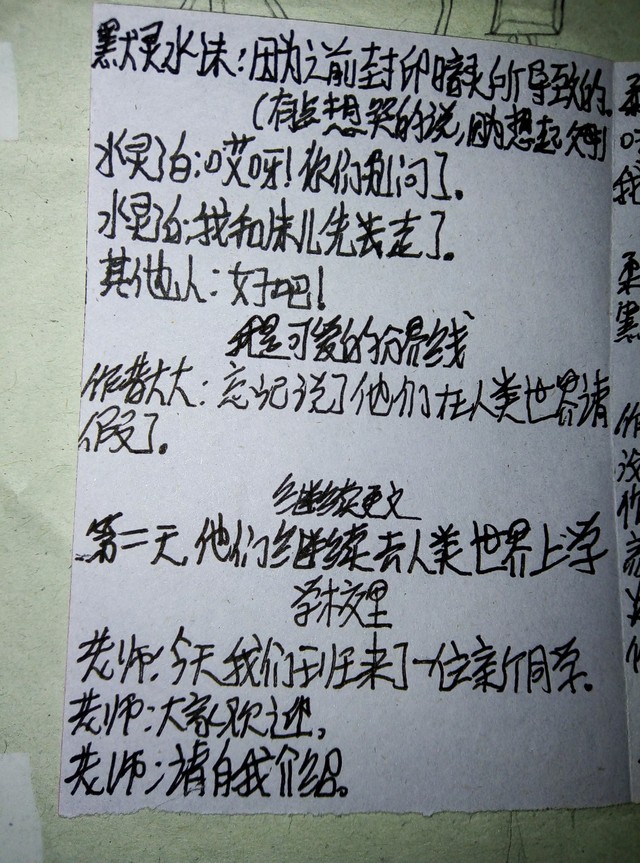 默灵水沫：因为之前封印暗灵所导致的。
(有点想哭的说，因为想起
水灵泊：哎呀！你们别问了。
水灵泊：我和沫儿先去走了。
其他人：好吧！
我是可爱的分界线
作者大大：忘记说了他们在人类世界请
假了。
继续更文
第二天，他们继续去人类世界上学
学校里
老师：今天我们班来了一位新个同学。
老师：大家欢迎，
老师：请自我介绍。